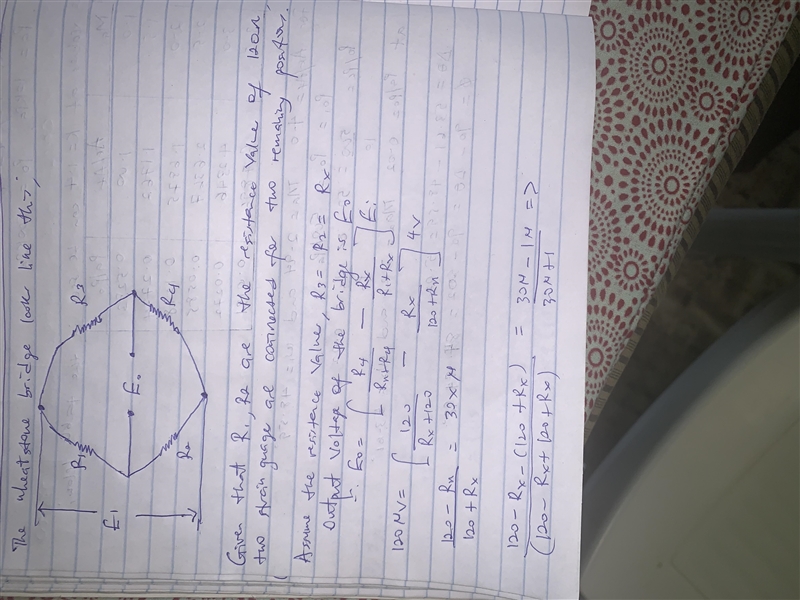 The wheatstone bridge look line this,
R1
R3
Ei
Eo
R2
R4
Given that R1, R2 are the resistance value of 120Ω,
two strain guage are connected for two remaining position.
Assume the resistance value, R3 = R2 = Rx
Output Voltage of the bridge is Eo
∴ Eo = [ R4 / Rx+R4 − Rx / R1+Rx ] Ei
120μV = [ 120 / Rx+120 − Rx / 120+Rx ] 4V
120 − Rx / 120 + Rx = 30 × μ
120 − Rx − (120 + Rx) / (120 − Rx + 120 + Rx) = 30μ − 1μ / 30μ + 1 =>